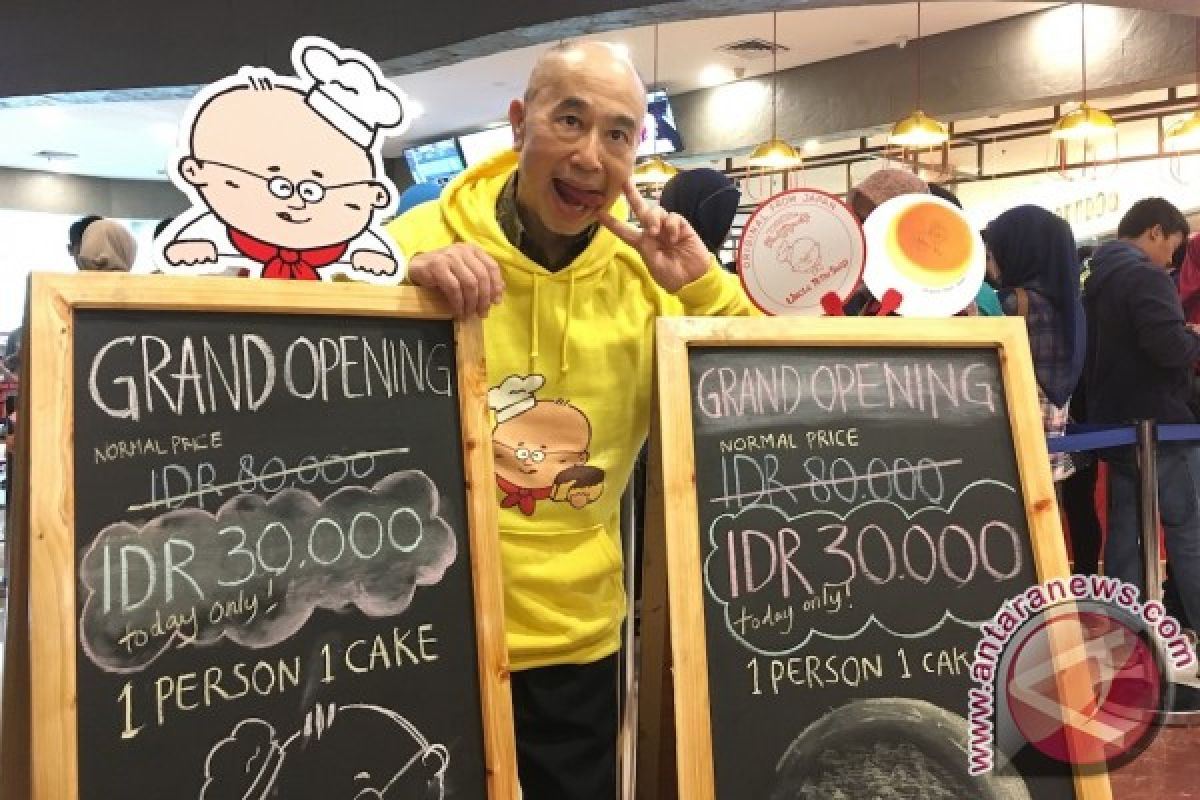 GRAND OPENING
NORMAL PRICE
IDR 80.000
IDR 30.000
today only!
1 PERSON 1 CAKE
ORIGINAL FROM JAPAN
Uncle Tetsu's
GRAND OPENING
NORMAL PRICE
IDR 80.000
IDR 30.000
today only!
1 PERSON 1 CAK
www.antaranews.com